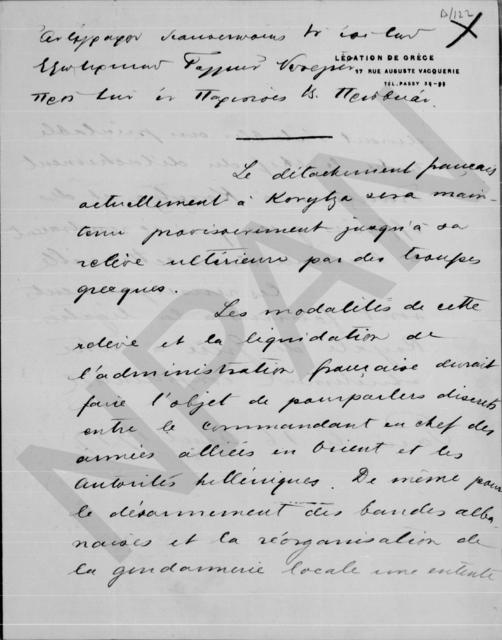 D/122
LÉGATION DE GRÈCE
17 RUE AUGUSTE VACQUERIE
TÉL. PASSY 26-89
Le détachement français
actuellement à Korytza sera main-
tenu provisoirement jusqu'à sa
relève ultérieure par des troupes
grecques.
Les modalités de cette
relève et la liquidation de
l'administration française devrait
faire l'objet de pourparlers discrets
entre le commandant en chef des
armées alliées en Orient et les
autorités helléniques. De même pour
le désarmement des bandes alba-
naises et la réorganisation de
la gendarmerie locale une entente
NPAN